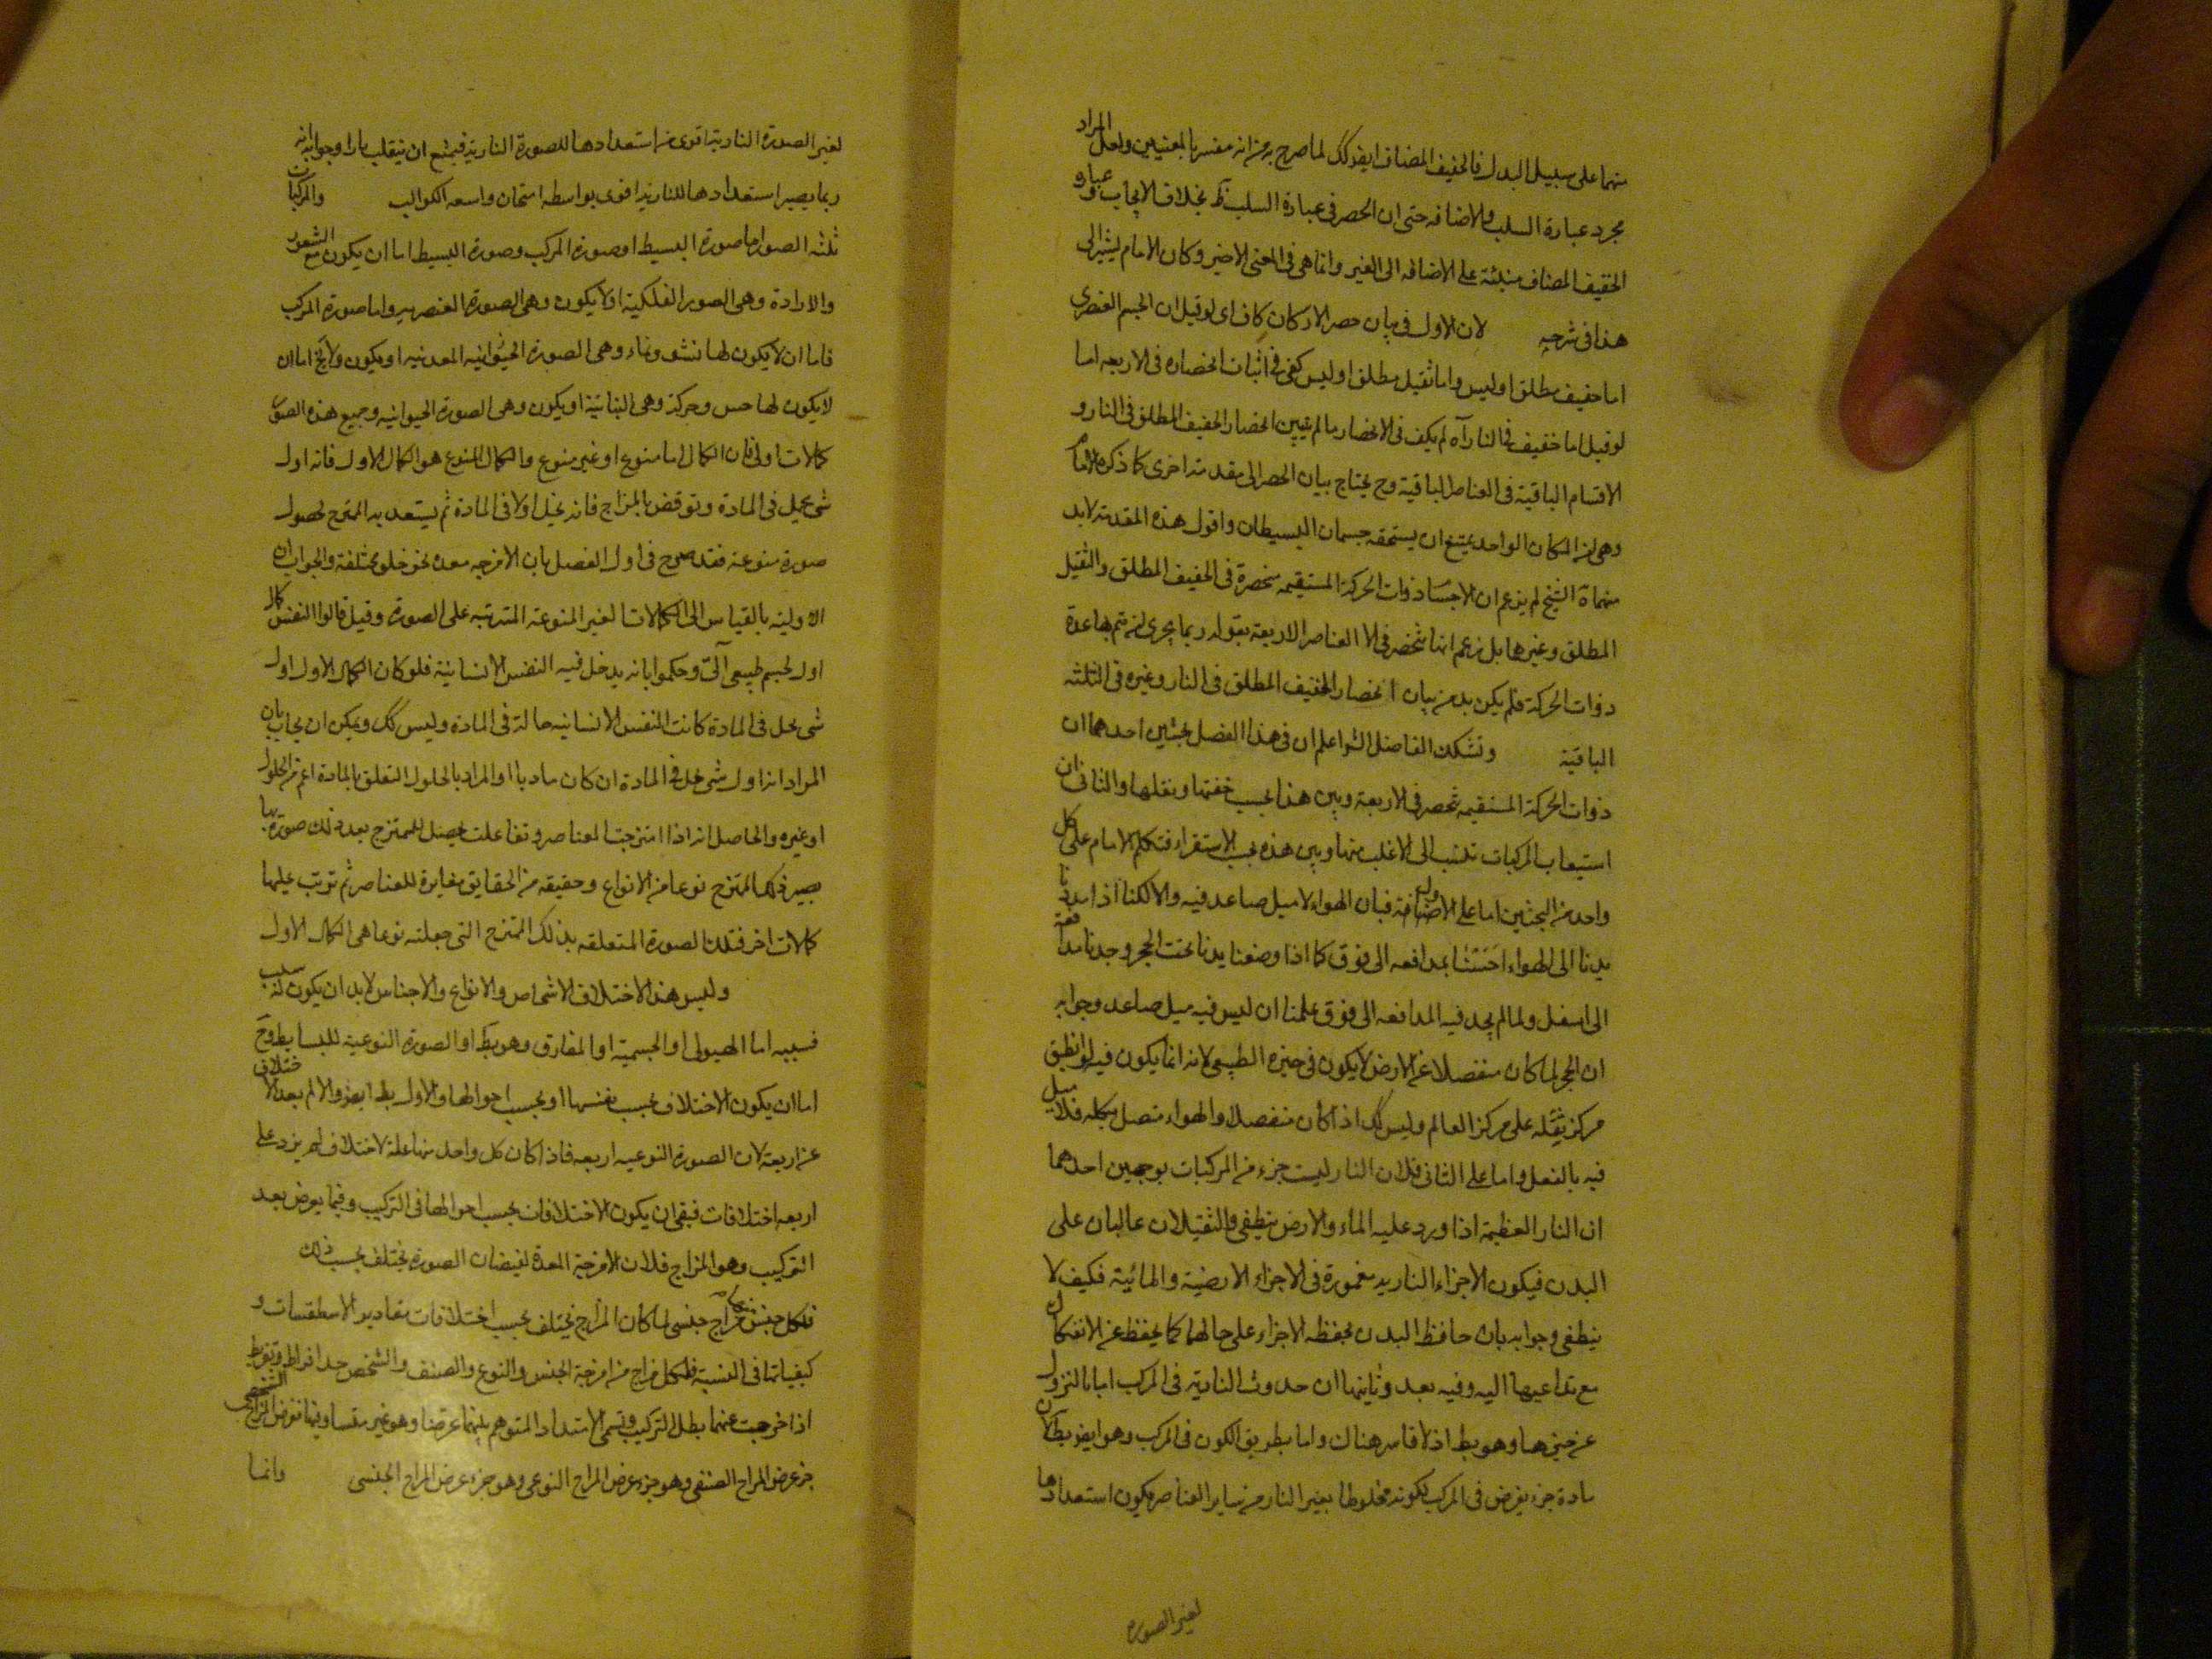 منهما على سبيل البدل فالخفيف المضاف ايضا كك لما صرح به من انه مفسر بالمعنيين ولعل المراد
مجرد عبارة السلب والاضافه حتى ان الحصر فى عبارة السلب بخلاف الايجاب و عبارة
الخفيف المضاف منبئة على الاضافه الى الغير وانما هى فى المعنى الاخير وكان الامام يشير الى
هذا فى شرحه لان الاول فى بيان حصر الاركان كاف اى لو قيل ان الجسم العنصرى
اما خفيف مطلق او ليس واما ثقيل مطلق او ليس كفى فى اثبات انحصاره فى الاربعه اما
لو قيل اما خفيف فى النار آه لم يكف فى الانحصار ما لم يتبين انحصار الخفيف المطلق فى النار و
الاقسام الباقية فى العناصر الباقية وح يحتاج بيان الحصر الى مقدمة اخرى كما ذكره الامام
وهى ان المكان الواحد يمتنع ان يستحقه جسمان البسيطان واقول هذه المقدمة لابد
منها الشيخ لم يزعم ان الاجساد ذوات الحركة المستقيمه منحصرة فى الخفيف المطلق والثقيل
المطلق وغيرها بل زعم انها تنحصر فى العناصر الاربعة بقوله
ذوات الحركة فلم يكن بد من بيان انحصار الخفيف المطلق فى النار وغيره فى الثلثه
الباقية اعلم ان فى هذا الفصل بحثين احدهما ان
ذوات الحركة المستقيمه تنحصر فى الاربعة وبين هذا بحسب خفتها وثقلها والثانى ان
استيعاب المركبات تنسب الى الاغلب منها وبين هذه بحسب الاستقراء فتكلم الامام على كل
واحد من البحثين اما على الاول فبان الهواء لا ميل صاعد فيه والا لكنا اذا مددنا
يدنا الى الهواء احسسنا بمدافعه الى فوق كما اذا وضعنا يدنا تحت الحجر وجدنا مدافعة
الى اسفل ولما لم يجد فيه المدافعه الى فوق علمنا ان ليس فيه ميل صاعد وجوابه
ان الحجر لما كان منفصلا عن الارض لا يكون فى حيزه الطبيعى لانه انما يكون فيه لو انطبق
مركز ثقله على مركز العالم وليس كك اذا كان منفصلا والهواء متصل بكله فلا ميل
فيه بالفعل واما على الثانى فلان النار ليست جزء من المركبات بوجهين احدهما
ان النار العظيمة اذا ورد عليه الماء والارض ينطفى والثقيلان غالبان على
البدن فيكون الاجزاء الناريه مغمورة فى الاجزاء الارضية والمائية فكيف لا
ينطفى وجوابه بان حافظ البدن يحفظ الاجزاء على حالها كما يحفظ عن الانفكاك
مع تداعيها اليه وفيه بعد وثانيهما ان حدوث النارية فى المركب اما بالنزول
عن حيزها وهو بط اذ لا قاسر هناك واما بطريق الكون فى المركب وهو ايضا بط لان
مادة جزء يفرض فى المركب لكونه مخلوطا بغير النار من سائر العناصر يكون استعدادها
لغير الصورة
لغير الصورة النارية اقوى من استعدادها للصورة النارية فيمتنع ان ينقلب نارا وجوابه انه
ربما يصير استعدادها للنارية اقوى بواسطه استحان واسعه الكواكب والمركبات
ثلثه الصور اما صورة البسيط او صورة المركب وصورة البسيط اما ان يكون مع الشعور
والارادة وهى الصور الفلكية اولا يكون وهى الصورة العنصريه واما صورة المركب
فاما ان لا يكون لها نشو ونماء وهى الصورة المعدنيه او يكون ولا يخ اما ان
لا يكون لها حس وحركة وهى النباتية او يكون وهى الصورة الحيوانيه وجميع هذه الصور
كمالات اولى فان الكمال اما منوع او غير منوع والكمال المنوع هو الكمال الاول فانه اول
شى يحل فى المادة ونوقض بالمزاج فانه يحل اولا فى المادة ثم يستعد به الممتزج لحصول
صورة منوعة فقد صرح فى اول الفصل بان الامزجه معدة نحو خلق مختلفة والجواب ان
الاولية بالقياس الى الكمالات الغير المنوعة المترتبه على الصورة وقيل قالوا النفس كمال
اول لجسم طبيعى آلى وحكموا بانه يدخل فيه النفس الانسانية فلو كان الكمال الاول اول
شى يحل فى المادة كانت النفس الانسانيه حالة فى المادة وليس كك ويمكن ان يجاب بان
المراد انه اول شى يحل فى المادة ان كان ماديا او المراد بالحلول التعلق بالمادة اعم من الحلول
او غيره والحاصل انه اذا امتزجت العناصر وتفاعلت يحصل للممتزج بعد ذلك صورة بها
يصير ذلك الممتزج نوعا من الانواع وحقيقه من الحقايق مغايرة للعناصر ثم ترتب عليها
كمالات اخر فتلك الصورة المتعلقه بذلك الممتزج التى جعلته نوعا هى الكمال الاول
وليس هذا الاختلاف الاشخاص والانواع والاجناس لابد ان يكون له سبب
فسببه اما الهيولى او الجسمية او المفارق وهو بط او الصورة النوعية للبسايط وح
اما ان يكون الاختلاف بحسب نفسها او بحسب احوالها والاول بط ايضا والا لم يعد الاختلاف
عن اربعة لان الصورة النوعيه اربعه فاذا كان كل واحد منها علة لاختلاف لم يزد على
اربعه اختلافات فبقى ان يكون الاختلافات بحسب احوالها فى التركيب وفيما يعرض بعد
التركيب وهو المزاج فلان الامزجة المعدة لفيضان الصورة تختلف بحسب ذلك
فلكل جنس مزاج جنسى لما كان المزاج يختلف بحسب اختلافات مقادير الاسطقسات و
كيفياتها فى النسبة فلكل مزاج من امزجة الجنس والنوع والصنف والشخص حد افراط وتفريط
اذا خرجت عنهما بطل التركيب وتسمى الامتداد المتوهم بينهما عرضا وهو غير متساو فيها فعرض المزاج الشخصى
جزء عرض المزاج الصنفى وهو جزء عرض المزاج النوعى وهو جزء عرض المزاج الجنسى وانما